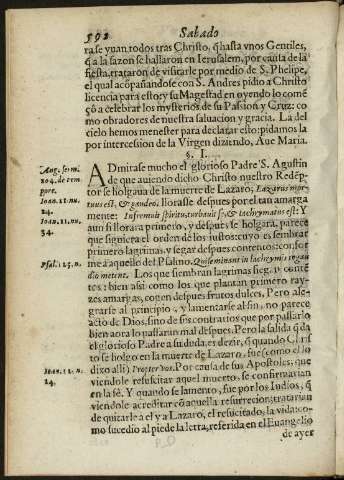 592 Sabado
rase yuan todos tras Christo, q̃ hasta vnos Gentiles,
q̃ a la sazon se hallaron en Ierusalem, por causa de la
fiesta, trataron de visitarle por medio de S. Phelipe,
el qual acõpañandose con S. Andres pidio a Christo
licencia para esto: y su Magestad en oyendo lo come
çõ a celebrar los mysterios de su Passion y Cruz: co
mo obradores de nuestra saluacion y gracia. La del
cielo hemos menester para declarar esto: pidamos la
por intercession de la Virgen diziendo, Aue Maria.
§. I.
ADmirase mucho el glorioso Padre S. Agustin
de que auiendo dicho Christo nuestro Redẽp
tor se holgaua de la muerte de Lazaro; Lazarus mor-
tuus est, & gaudeo, llorasse despues por el tan amarga
mente: Infremuit spiritu, turbauit se, & lachrymatus est: Y
aun si llorara primero, y despues se holgara, parece
que siguiera el orden de los iustos: cuyo es sembrar
primero lagrimas, y segar despues contentos: confor
me a aquello del Psalmo. Qui seminant in lachrymis in gau
dio metent. Los que siembran lagrimas sieg, ã conté
tos: bien asi como los que plantan primero ray-
zes amargas, cogen despues frutos dulces, Pero ale-
grarse al principio, y lamentarse al fin, no parece
acto de Dios, sino de sus contrarios que por passarlo
bien aora lo passaran mal despues. Pero la salida q̃ da
el glorioso Padre a su duda, es dezir, q̃ quando Chris
to se holgo en la muerte de Lazaro, fue (como el lo
dixo alli) Propter vos. Por causa de sus Apostoles, que
viendole resuscitar aquel muerto, se confirmarian
en la fè. Y quando se lamento, fue por los Iudios, q̃
viendole acreditar cõ aquella resurrecion, tratarian
de quitarle a el y a Lazaro, el resucitado, la vida: co-
mo sucedio al pie de la letra, referida en el Euangelio
de ayer
Aug. ser. mi
104. de tem
pore.
Ioan. 11. nu.
14.
Ioan. 11. nu.
34.
Psal. 125. n.
Ioan. 11. n.
14.